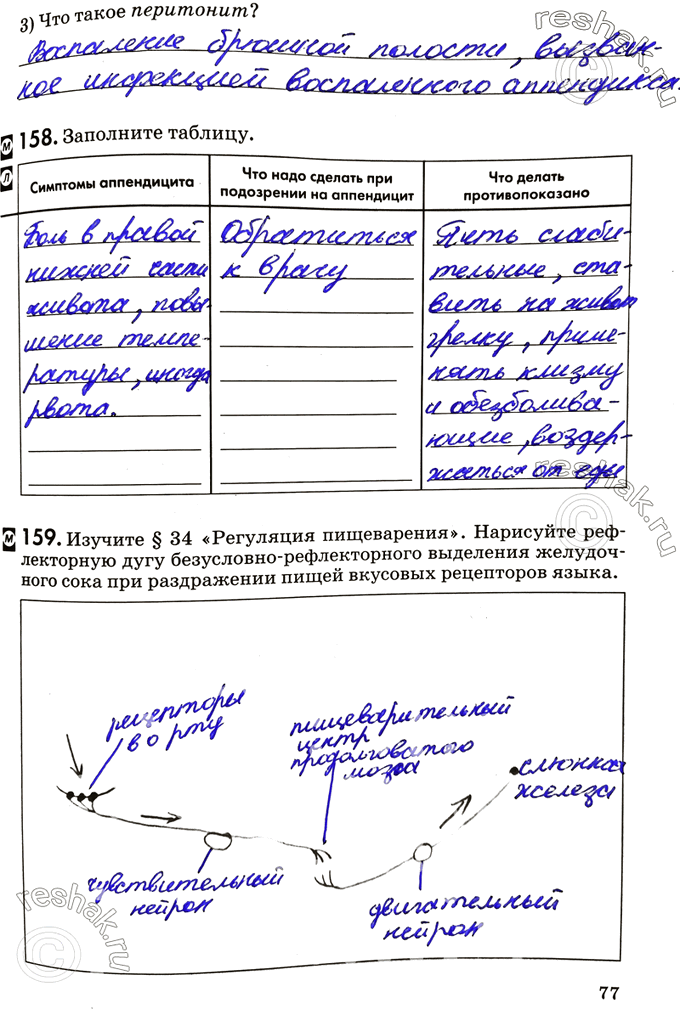 3) Что такое перитонит?
Воспаление брюшной полости, вызван-
ное инфекцией воспаленного аппендикса.
М 158. Заполните таблицу.
Л
Симптомы аппендицита
Что надо сделать при
подозрении на аппендицит
Что делать
противопоказано
Боль в правой
нижней части
живота, повы-
шение темпе-
ратуры, иногда
рвота.
Обратиться
к врачу
Пить слаби-
тельные, ста-
вить на живот
грелку, приме-
нять клизму
и обезболива-
ющие, воздер-
жаться от еды
М 159. Изучите § 34 «Регуляция пищеварения». Нарисуйте реф-
лекторную дугу безусловно-рефлекторного выделения желудоч-
ного сока при раздражении пищей вкусовых рецепторов языка.
рецепторы
во рту
пищеварительный
центр
продолговатого
мозга
слюнная
железа
чувствительный
нейрон
двигательный
нейрон
77
reshak.ru
reshak.ru
reshak.ru
reshak.ru